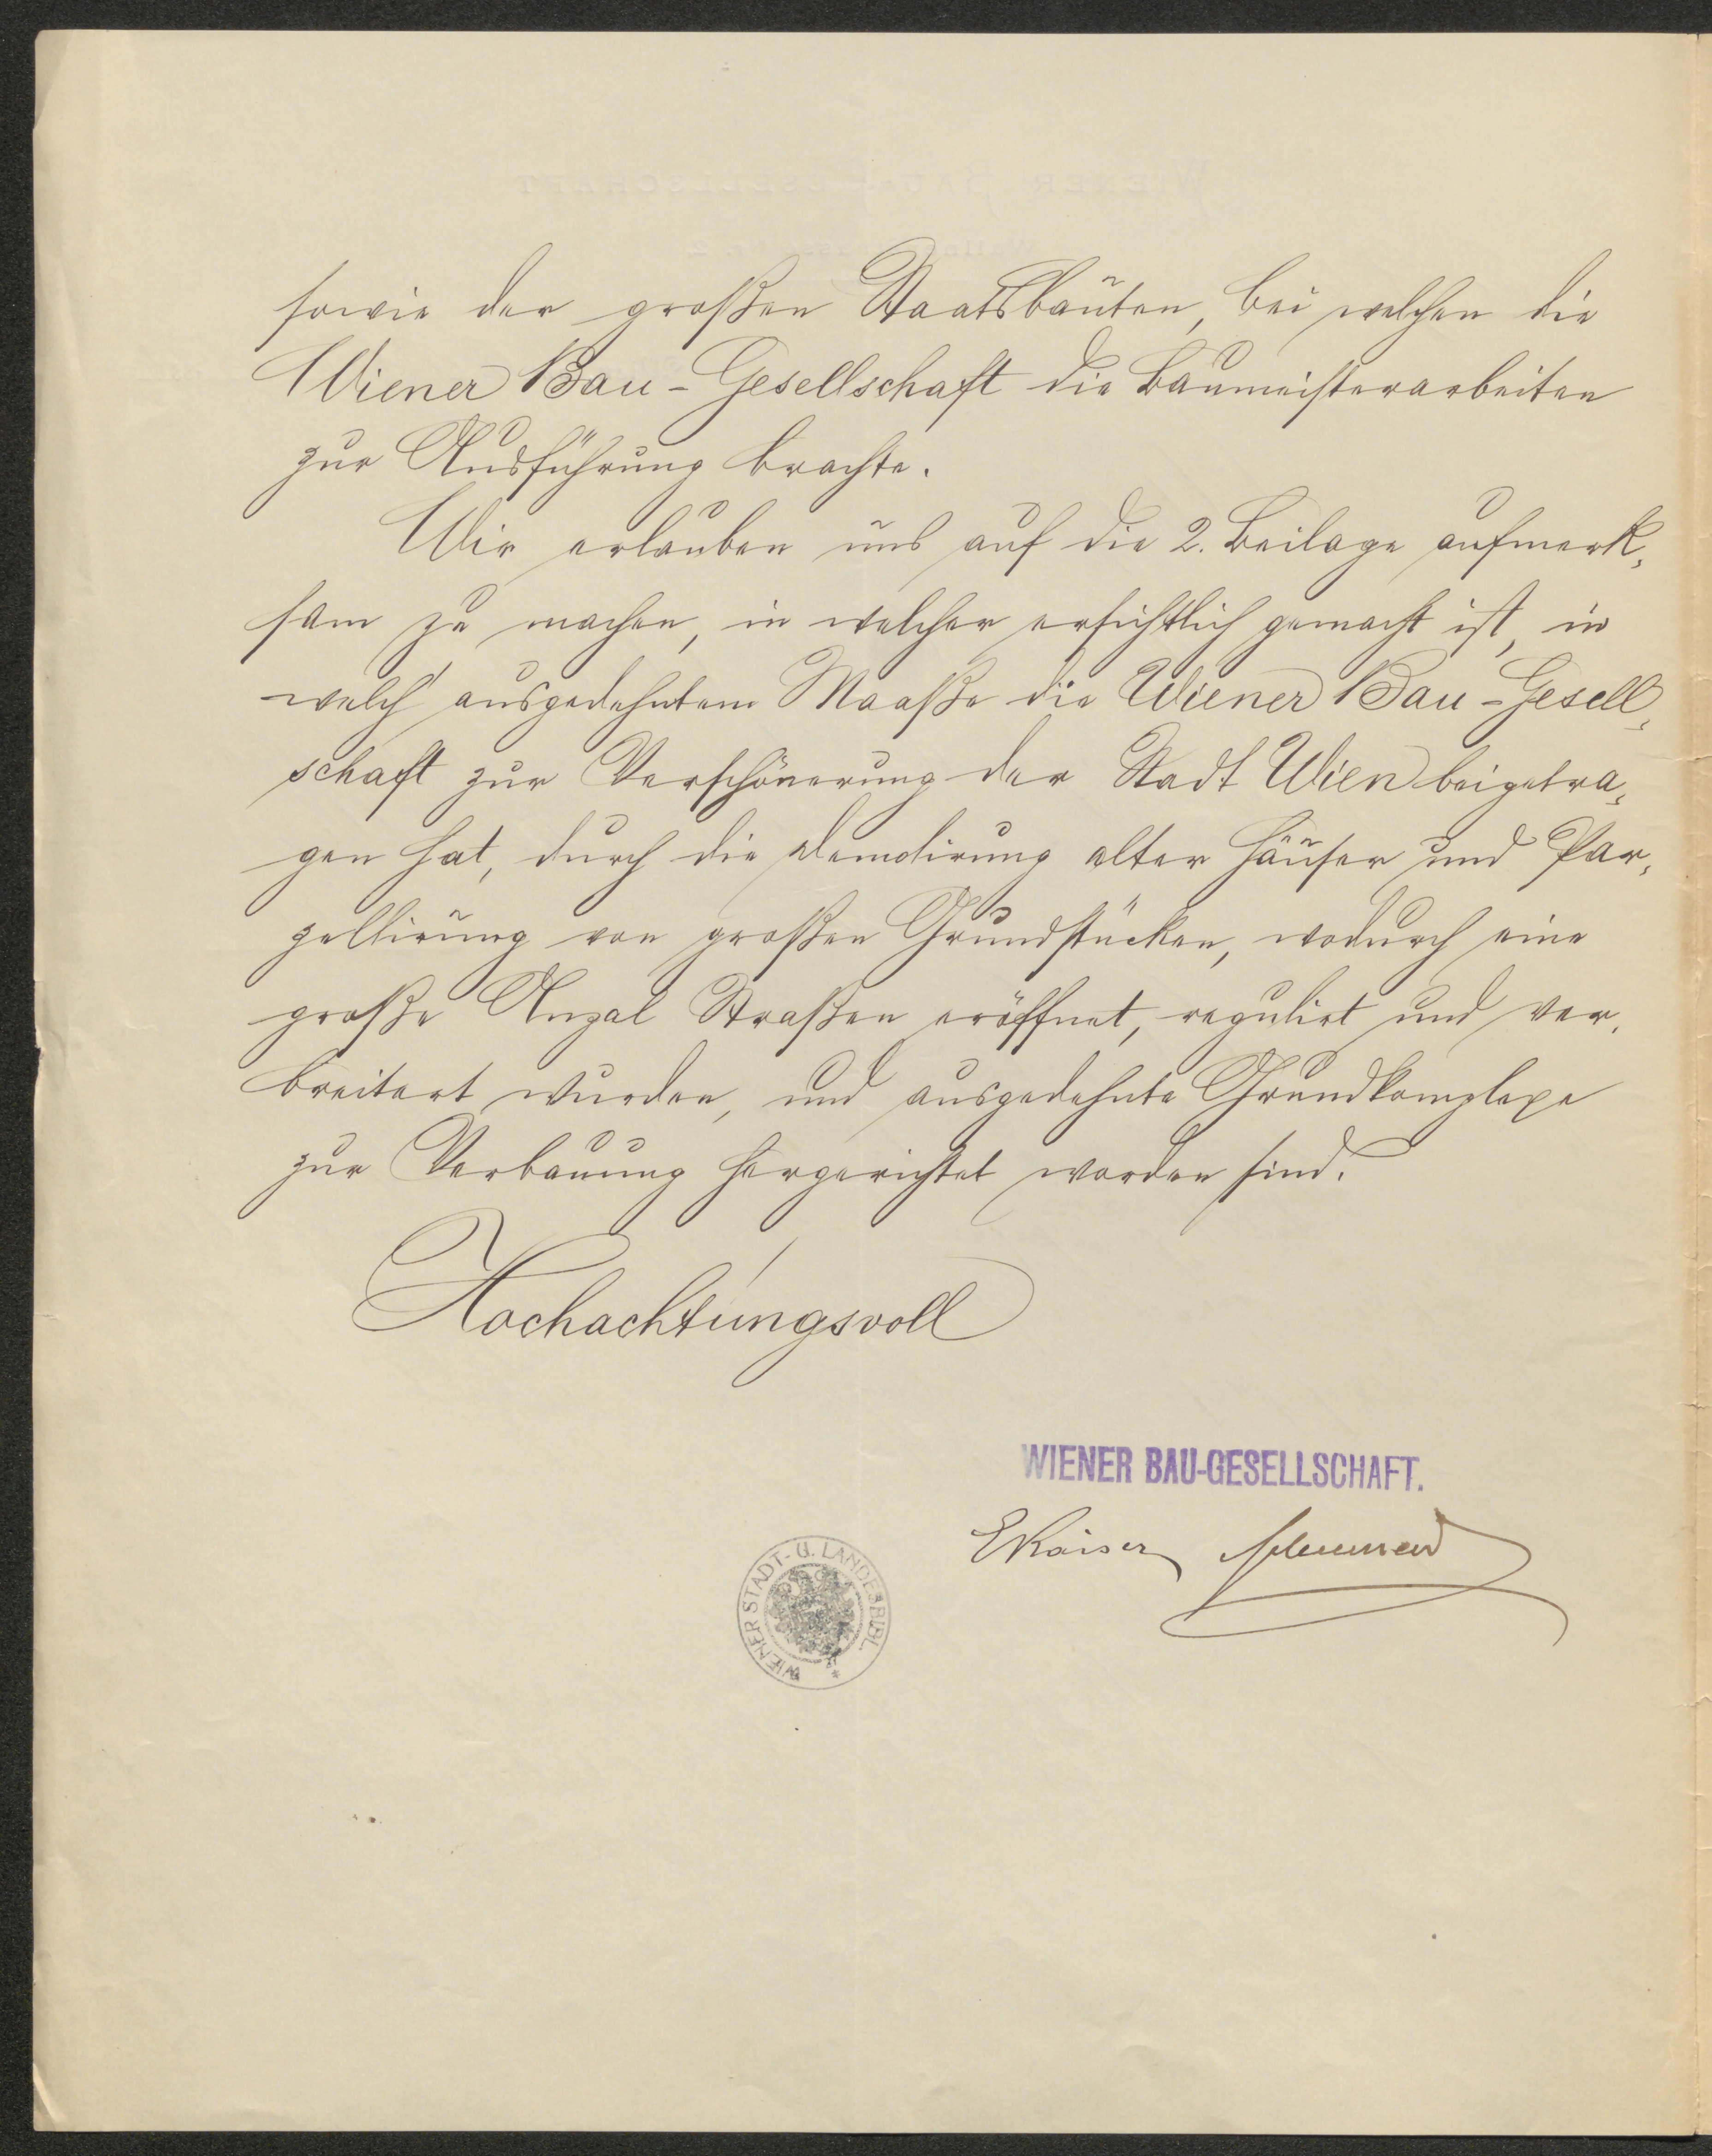 sowie der großen Staatsbauten, bei welchen die
Wiener Bau-Gesellschaft die Baumeisterarbeiten
zur Ausführung brachte.
Wir erlauben uns auf die 2. Beilage aufmerk-
sam zu machen, in welcher ersichtlich gemacht ist, in
welch' ausgedehntem Maaße die Wiener Bau-Gesell-
schaft zur Verschönerung der Stadt Wien beigetra-
gen hat, durch die Demolirung alter Häuser und Par-
zellirung von großen Grundstücken, wodurch eine
große Anzal Straßen eröffnet, regulirt und ver-
breitert wurden, und ausgedehnte Grundkomplexe
zur Verbauung hergerichtet worden sind.
Hochachtungsvoll
WIENER BAU-GESELLSCHAFT.
EKaiser
WIENER STADT- U. LANDESBIBL.